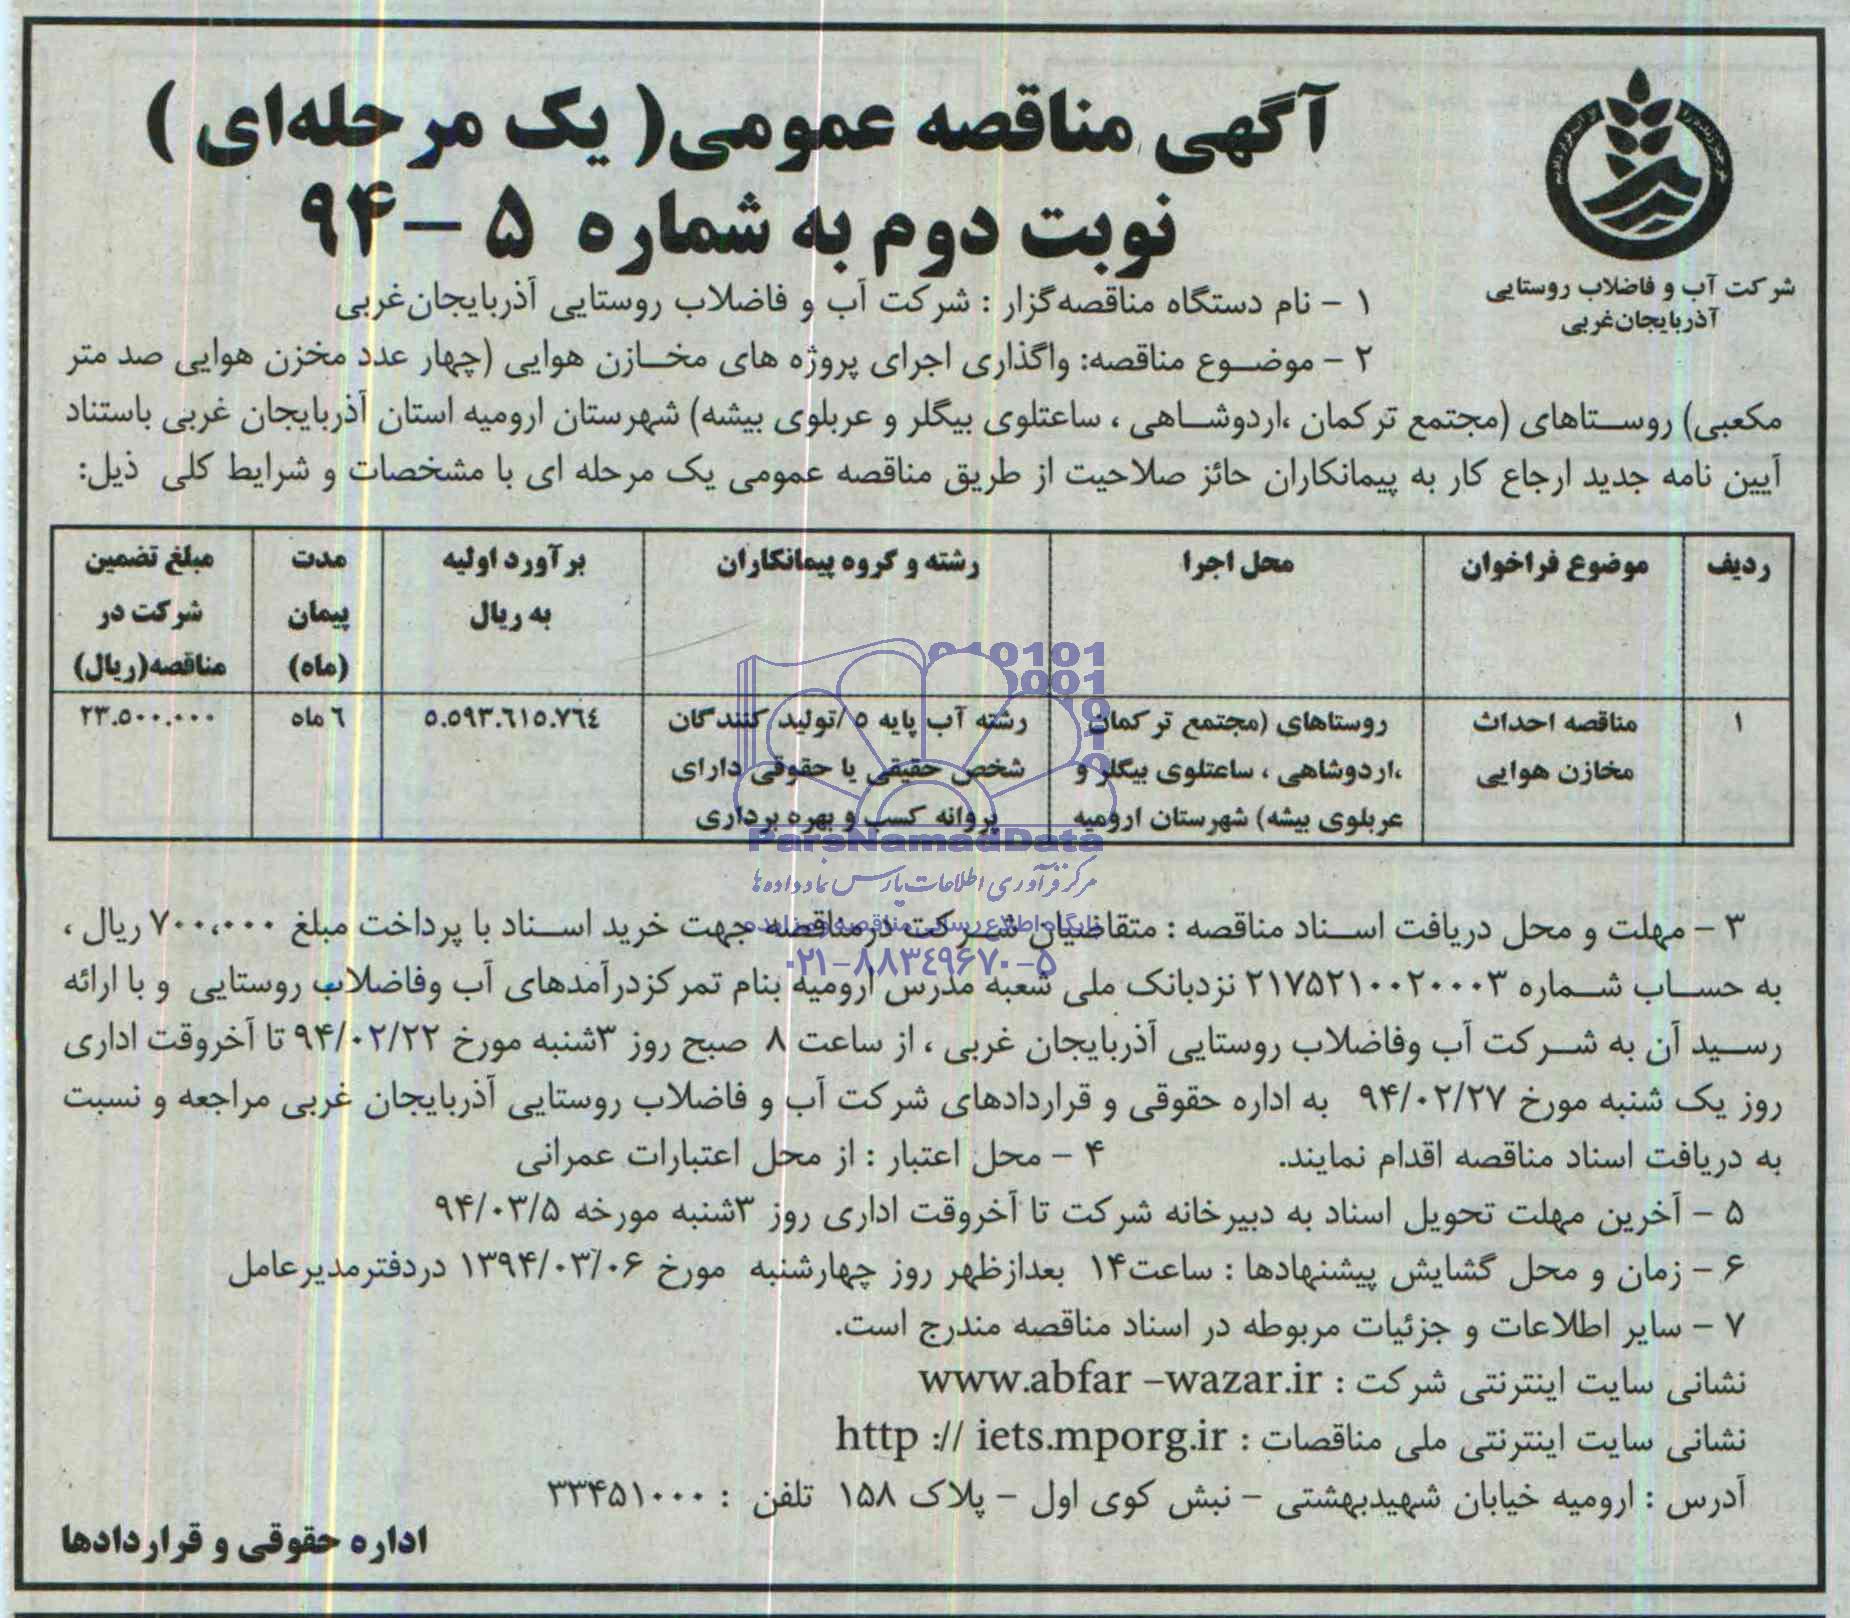 آگهی مناقصه عمومی( یک مرحله‌ای )
نوبت دوم به شماره ۵ – ۹۴
شرکت آب و فاضلاب روستایی
آذربایجان‌غربی
۱ – نام دستگاه مناقصه‌گزار : شرکت آب و فاضلاب روستایی آذربایجان‌غربی
۲ – موضوع مناقصه: واگذاری اجرای پروژه های مخازن هوایی (چهار عدد مخزن هوایی صد متر
مکعبی) روستاهای (مجتمع ترکمان ،اردوشاهی ، ساعتلوی بیگلر و عربلوی بیشه) شهرستان ارومیه استان آذربایجان غربی باستناد
آیین نامه جدید ارجاع کار به پیمانکاران حائز صلاحیت از طریق مناقصه عمومی یک مرحله ای با مشخصات و شرایط کلی ذیل:
ردیف موضوع فراخوان محل اجرا رشته و گروه پیمانکاران برآورد اولیه به ریال مدت پیمان (ماه) مبلغ تضمین شرکت در مناقصه(ریال)
۱ مناقصه احداث مخازن هوایی روستاهای (مجتمع ترکمان ،اردوشاهی ، ساعتلوی بیگلر و عربلوی بیشه) شهرستان ارومیه رشته آب پایه ٥ /تولید کنندگان شخص حقیقی یا حقوقی دارای پروانه کسب و بهره برداری ٥.٥٩٣.٦١٥.٧٦٤ ٦ ماه ٢٣.٥٠٠.٠٠٠
010101
ParsNamadData
مرکز فرآوری اطلاعات پارس نماد داده‌ها
پایگاه اطلاع رسانی مناقصه و مزایده
۰۲۱-۸۸۳۴۹۶۷۰-۵
۳ – مهلت و محل دریافت اسناد مناقصه : متقاضیان شرکت درمناقصه جهت خرید اسناد با پرداخت مبلغ ۷۰۰،۰۰۰ ریال ،
به حساب شماره ۲۱۷۵۲۱۰۰۲۰۰۰۳ نزدبانک ملی شعبه مدرس ارومیه بنام تمرکزدرآمدهای آب وفاضلاب روستایی و با ارائه
رسید آن به شرکت آب وفاضلاب روستایی آذربایجان غربی ، از ساعت ۸ صبح روز ۳شنبه مورخ ۹۴/۰۲/۲۲ تا آخروقت اداری
روز یک شنبه مورخ ۹۴/۰۲/۲۷ به اداره حقوقی و قراردادهای شرکت آب و فاضلاب روستایی آذربایجان غربی مراجعه و نسبت
به دریافت اسناد مناقصه اقدام نمایند. ۴ – محل اعتبار : از محل اعتبارات عمرانی
۵ – آخرین مهلت تحویل اسناد به دبیرخانه شرکت تا آخروقت اداری روز ۳شنبه مورخه ۹۴/۰۳/۵
۶ – زمان و محل گشایش پیشنهادها : ساعت۱۴ بعدازظهر روز چهارشنبه مورخ ۱۳۹۴/۰۳/۰۶ دردفترمدیرعامل
۷ – سایر اطلاعات و جزئیات مربوطه در اسناد مناقصه مندرج است.
نشانی سایت اینترنتی شرکت : www.abfar –wazar.ir
نشانی سایت اینترنتی ملی مناقصات : http :// iets.mporg.ir
آدرس : ارومیه خیابان شهیدبهشتی – نبش کوی اول – پلاک ۱۵۸ تلفن : ۳۳۴۵۱۰۰۰
اداره حقوقی و قراردادها